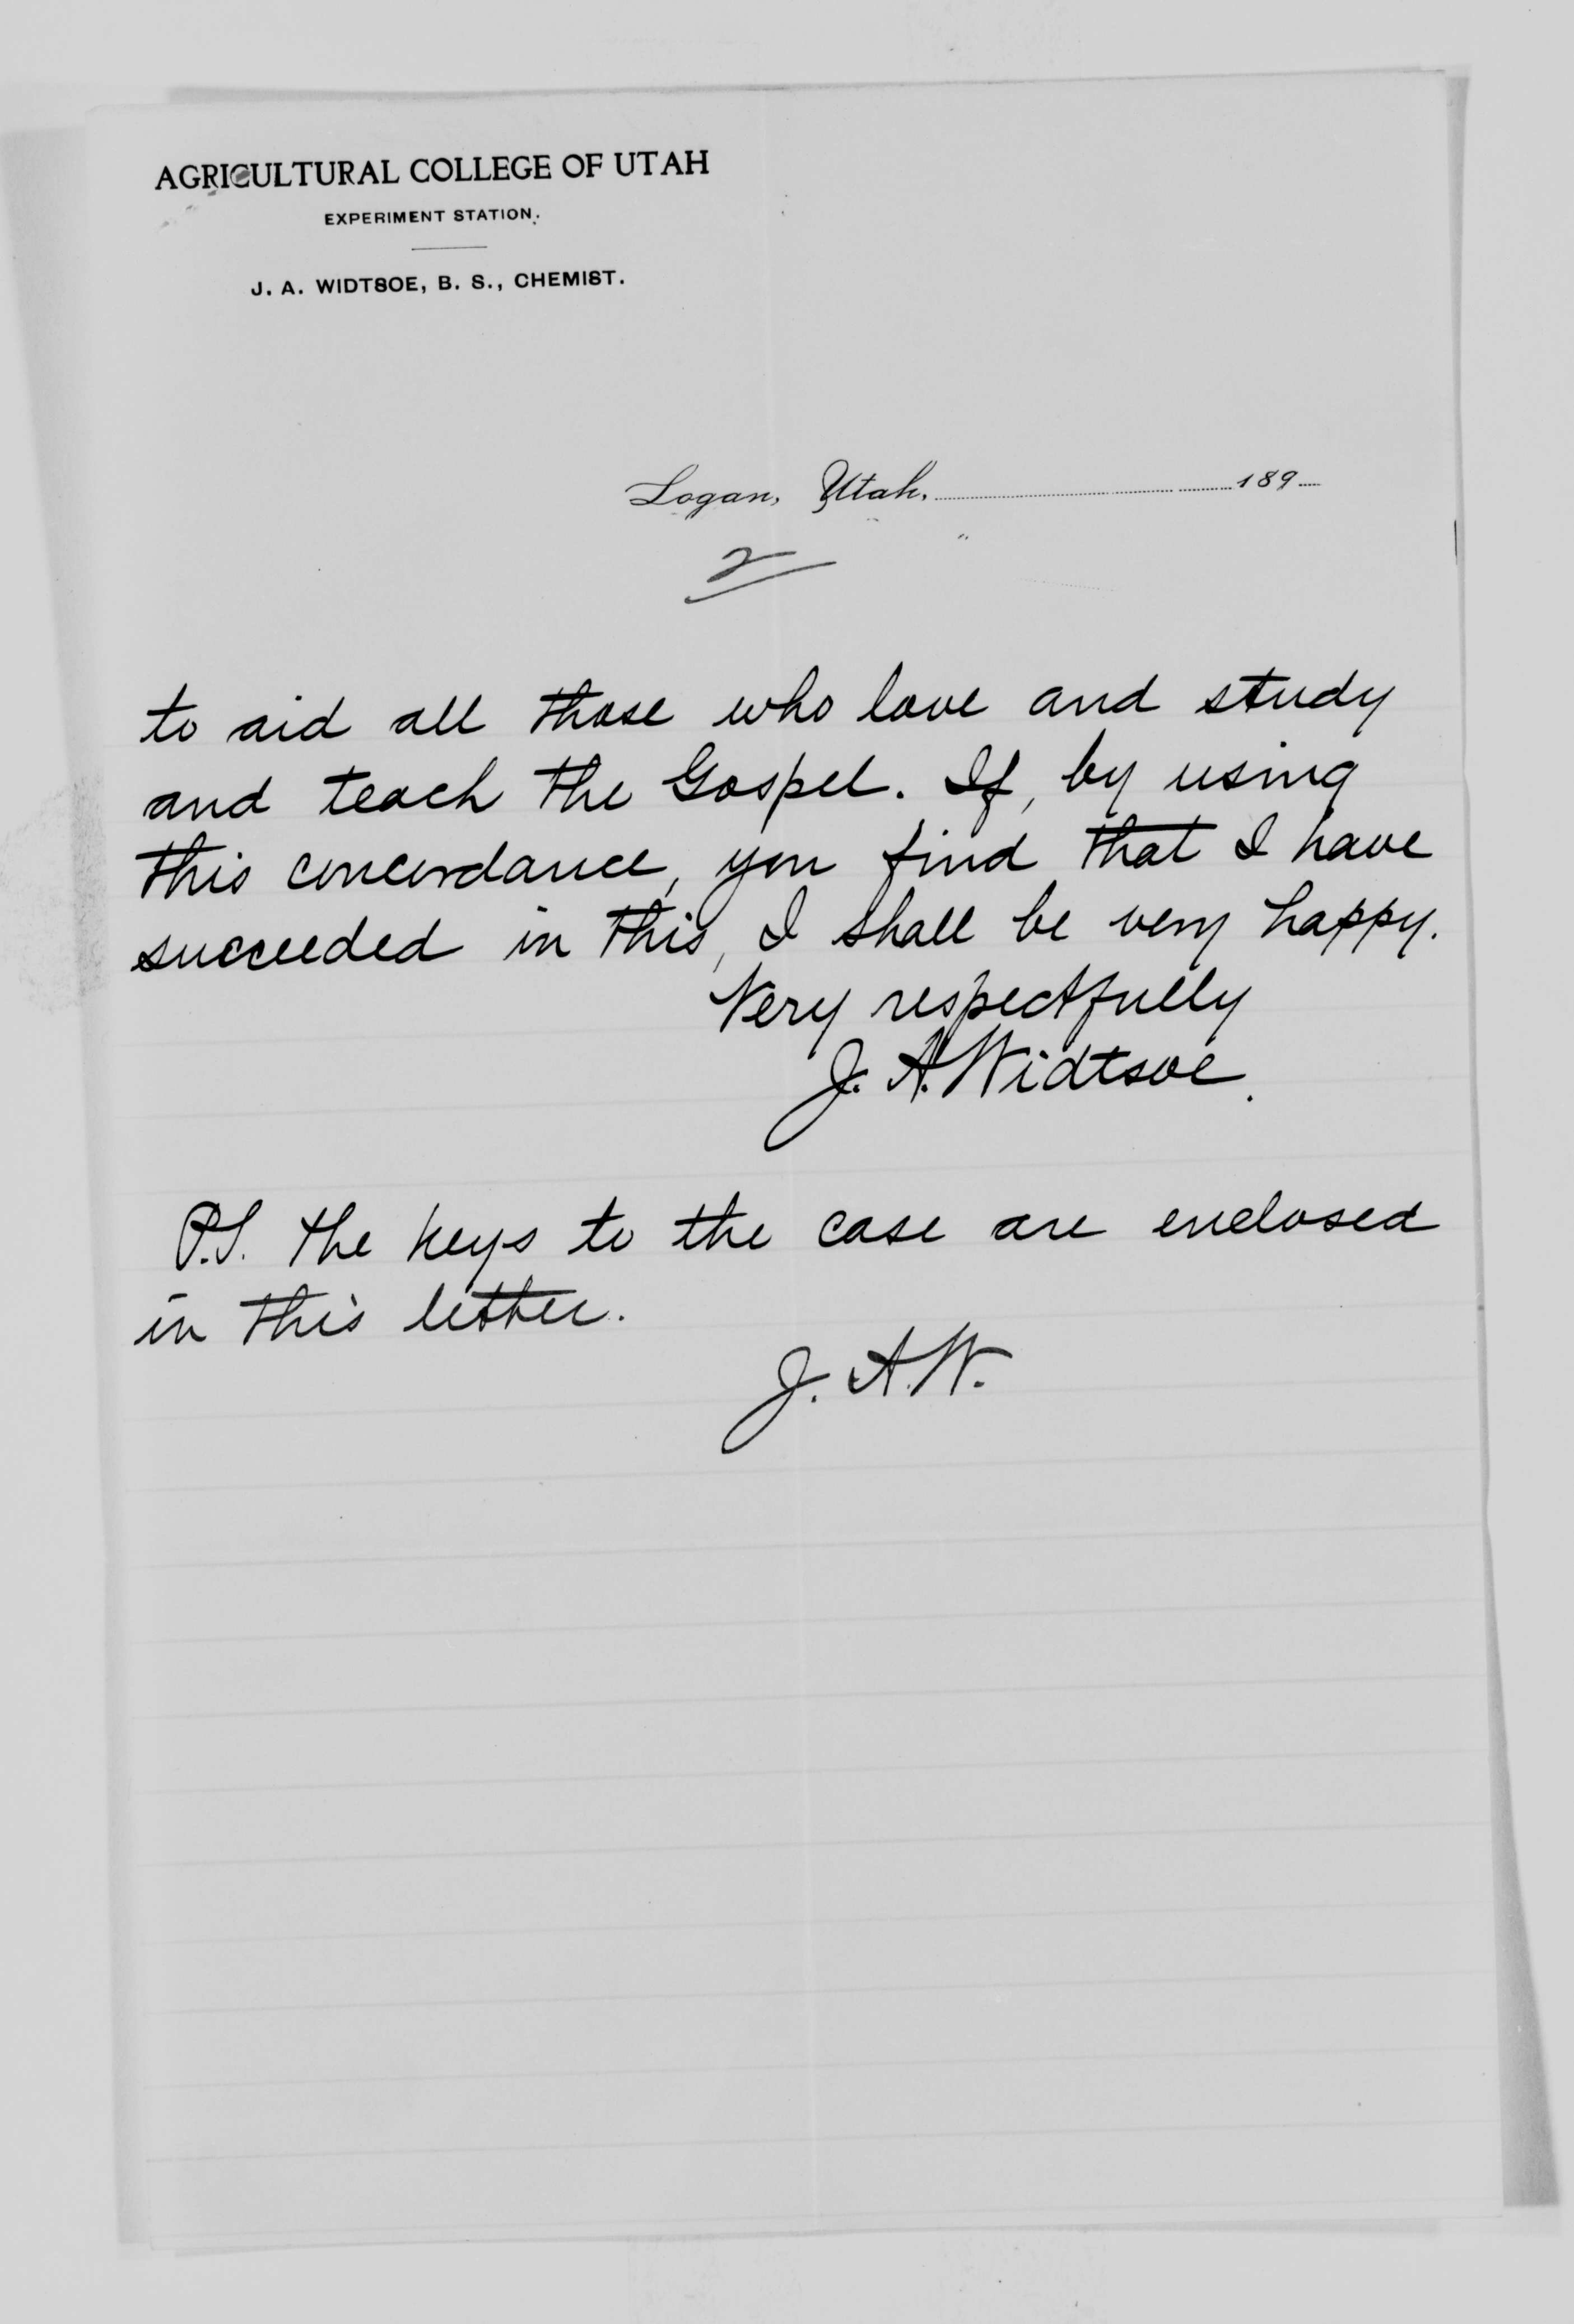 AGRICULTURAL COLLEGE OF UTAH
EXPERIMENT STATION.
J. A. WIDTSOE, B. S., CHEMIST.
Logan, Utah, 189
2
to aid all those who love and study
and teach the Gospel. If, by using
this concordance, you find that I have
succeeded in this, I shall be very happy.
Very respectfully
J. A. Widtsoe.
P.S. The keys to the case are enclosed
in this letter.
J. A. W.